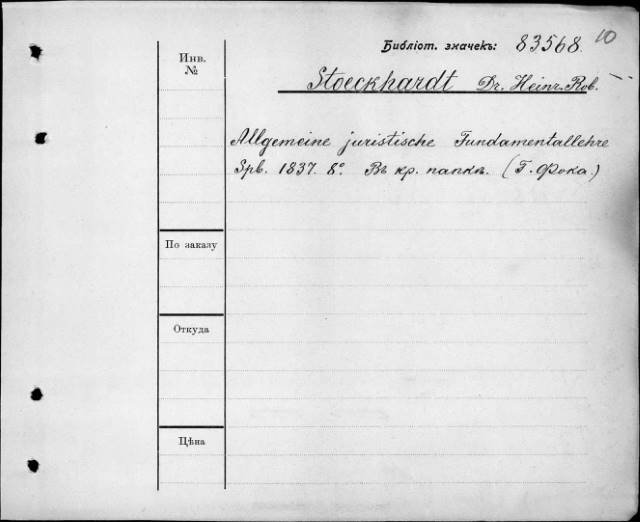 Библіот. значекъ: 83568. 10
Инв.
№
Stoeckhardt Dr. Heinr. Rob.
Allgemeine juristische Fundamentallehre
Spb. 1837. 8°. Въ кр. папкѣ. (Г. Фока.)
По заказу
Откуда
Цѣна